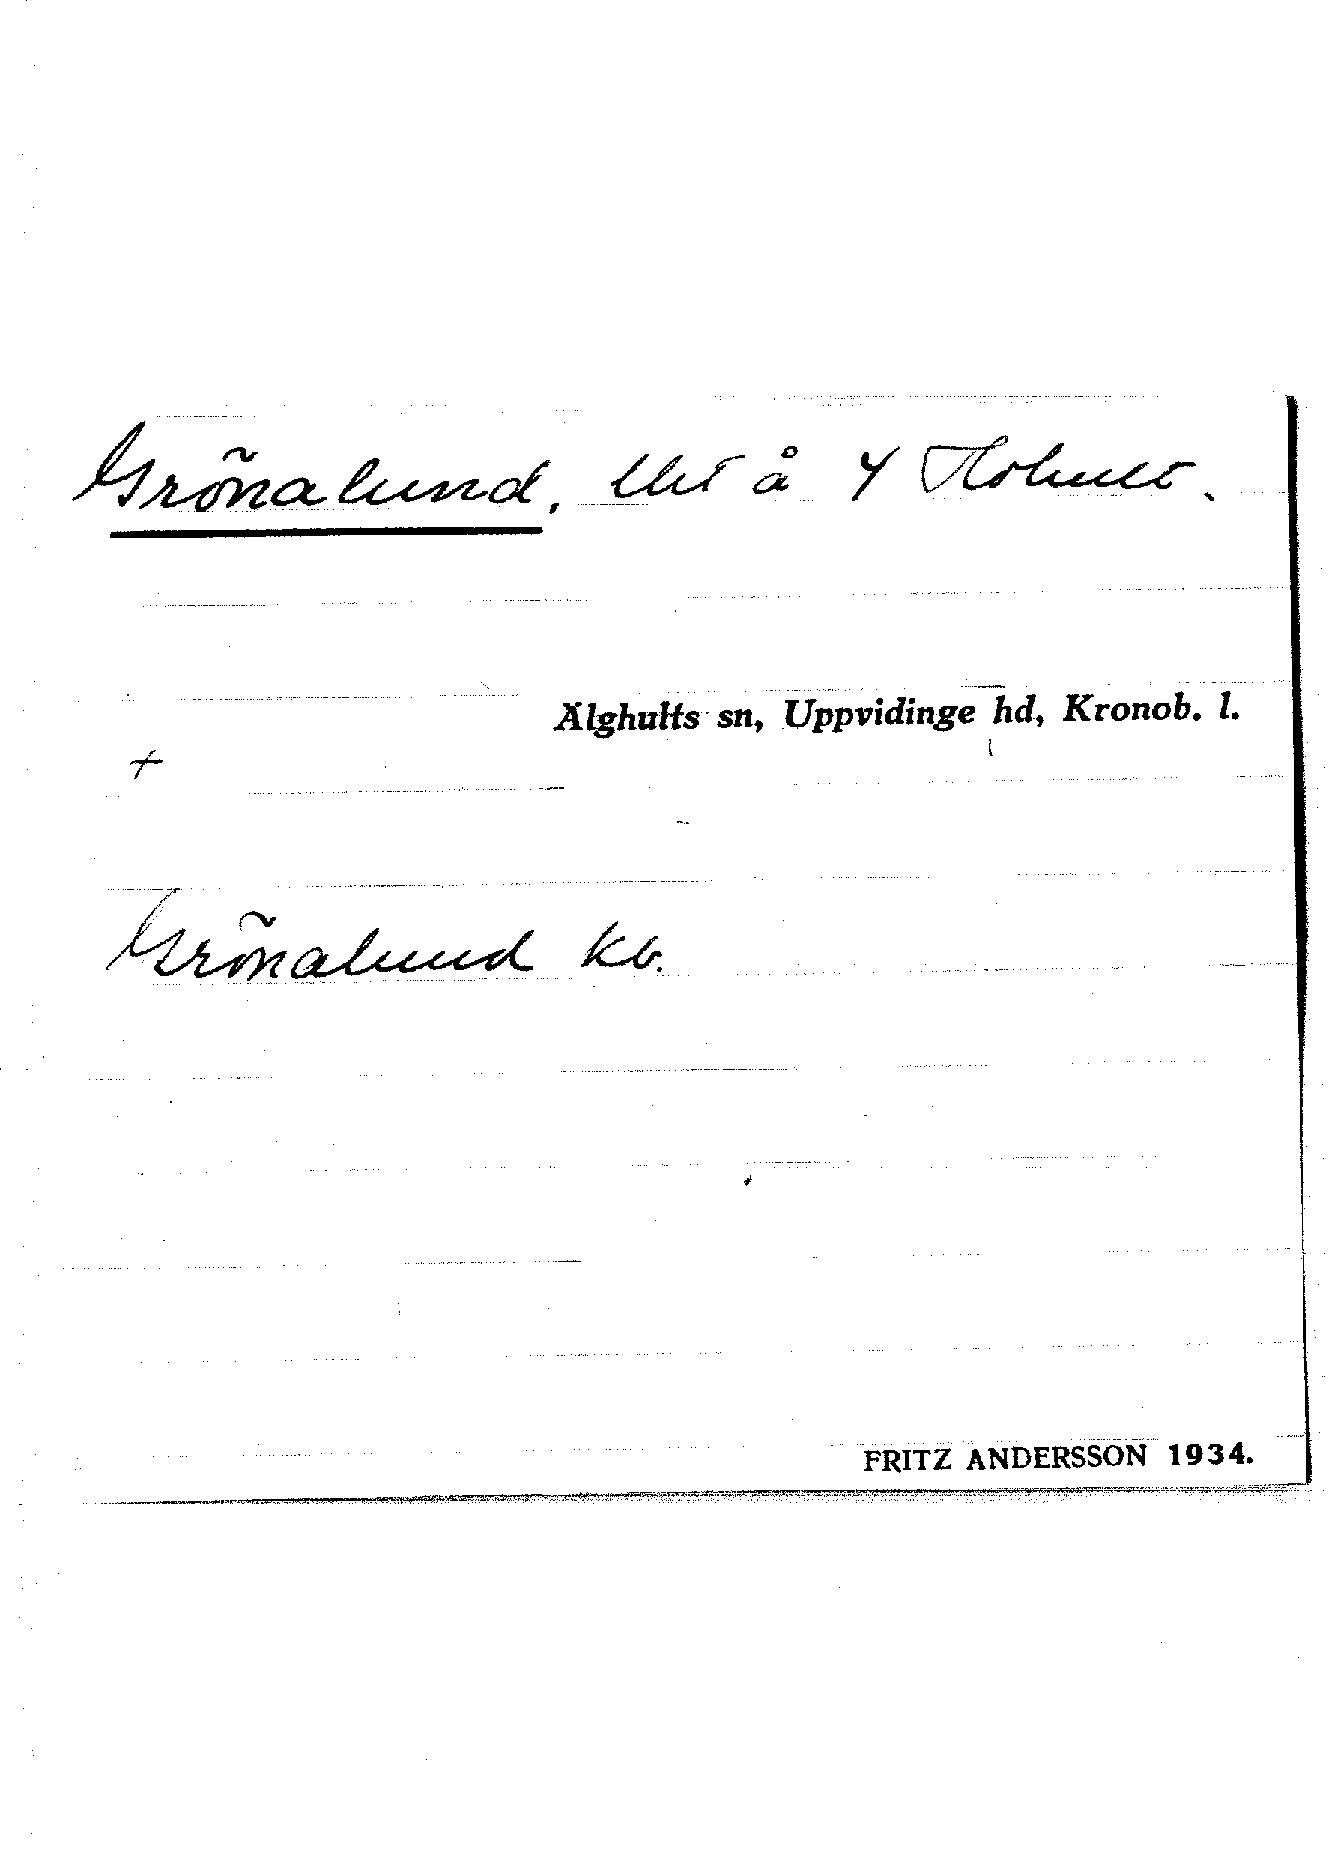 Grönalund, lht å 4 Hohult.
Älghults sn, Uppvidinge hd, Kronob. l.
+
Grönalund kb.
FRITZ ANDERSSON 1934.